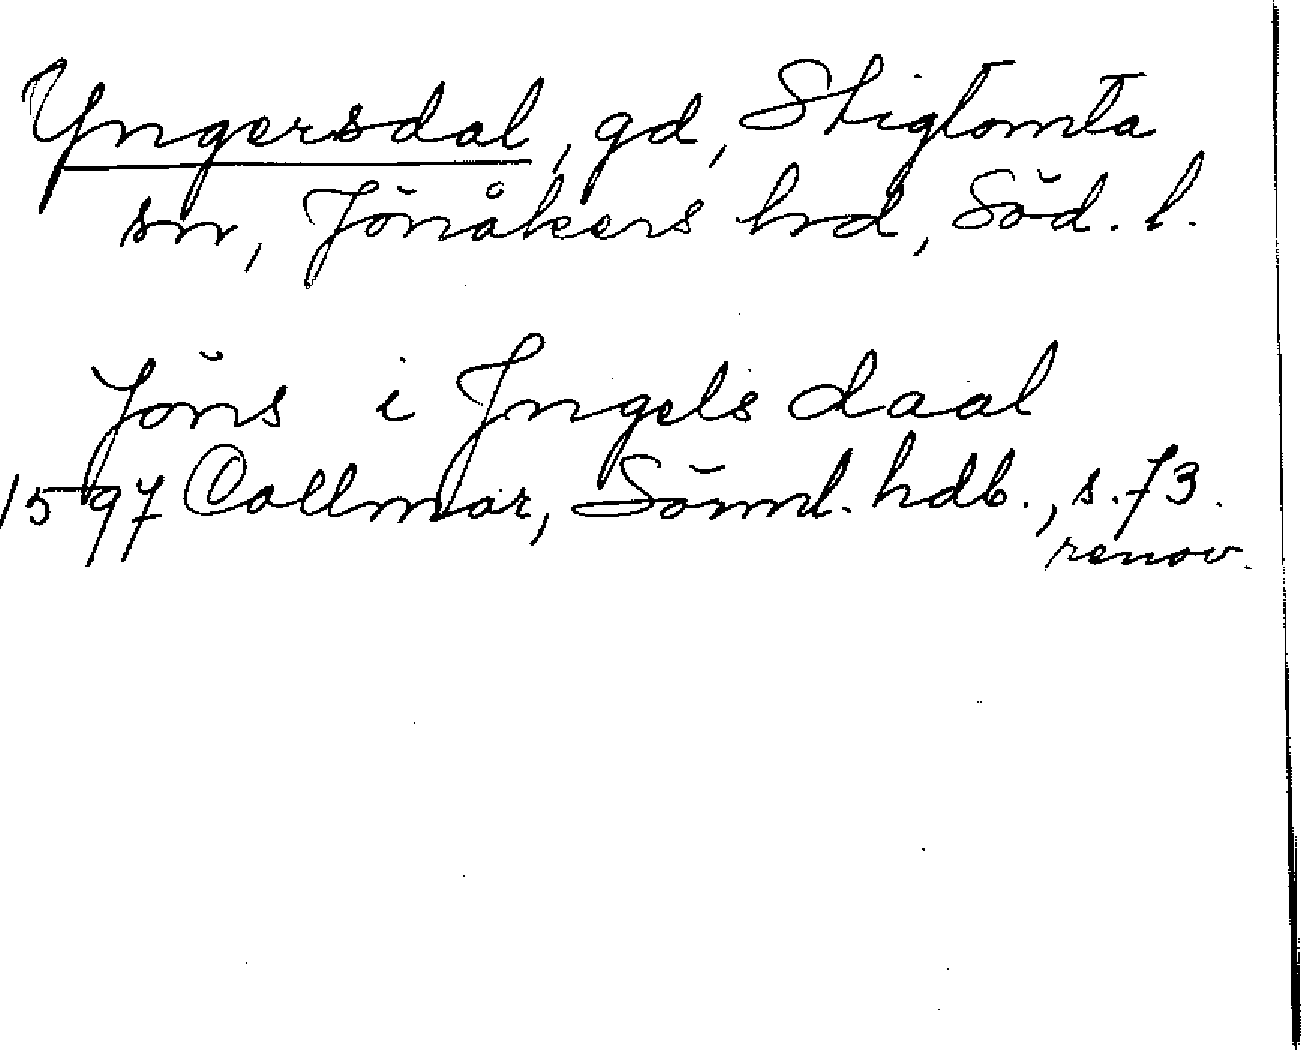 Yngersdal, gd, Stigtomta
sn, Jönåkers hrd, Söd. l.
Jöns i Jngels daal
1597 Collmar, Sörml. hdb., s. 73.
renov.